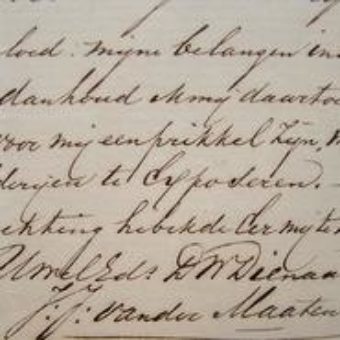 loed. mijne belangen in
dankoud ik mij daartoe
voor mij een prikkel zijn,
derijen te Exposeren. –
achting heb ik de Eer mij te
UwelEds DWDienaa
J. J. van der Maaten